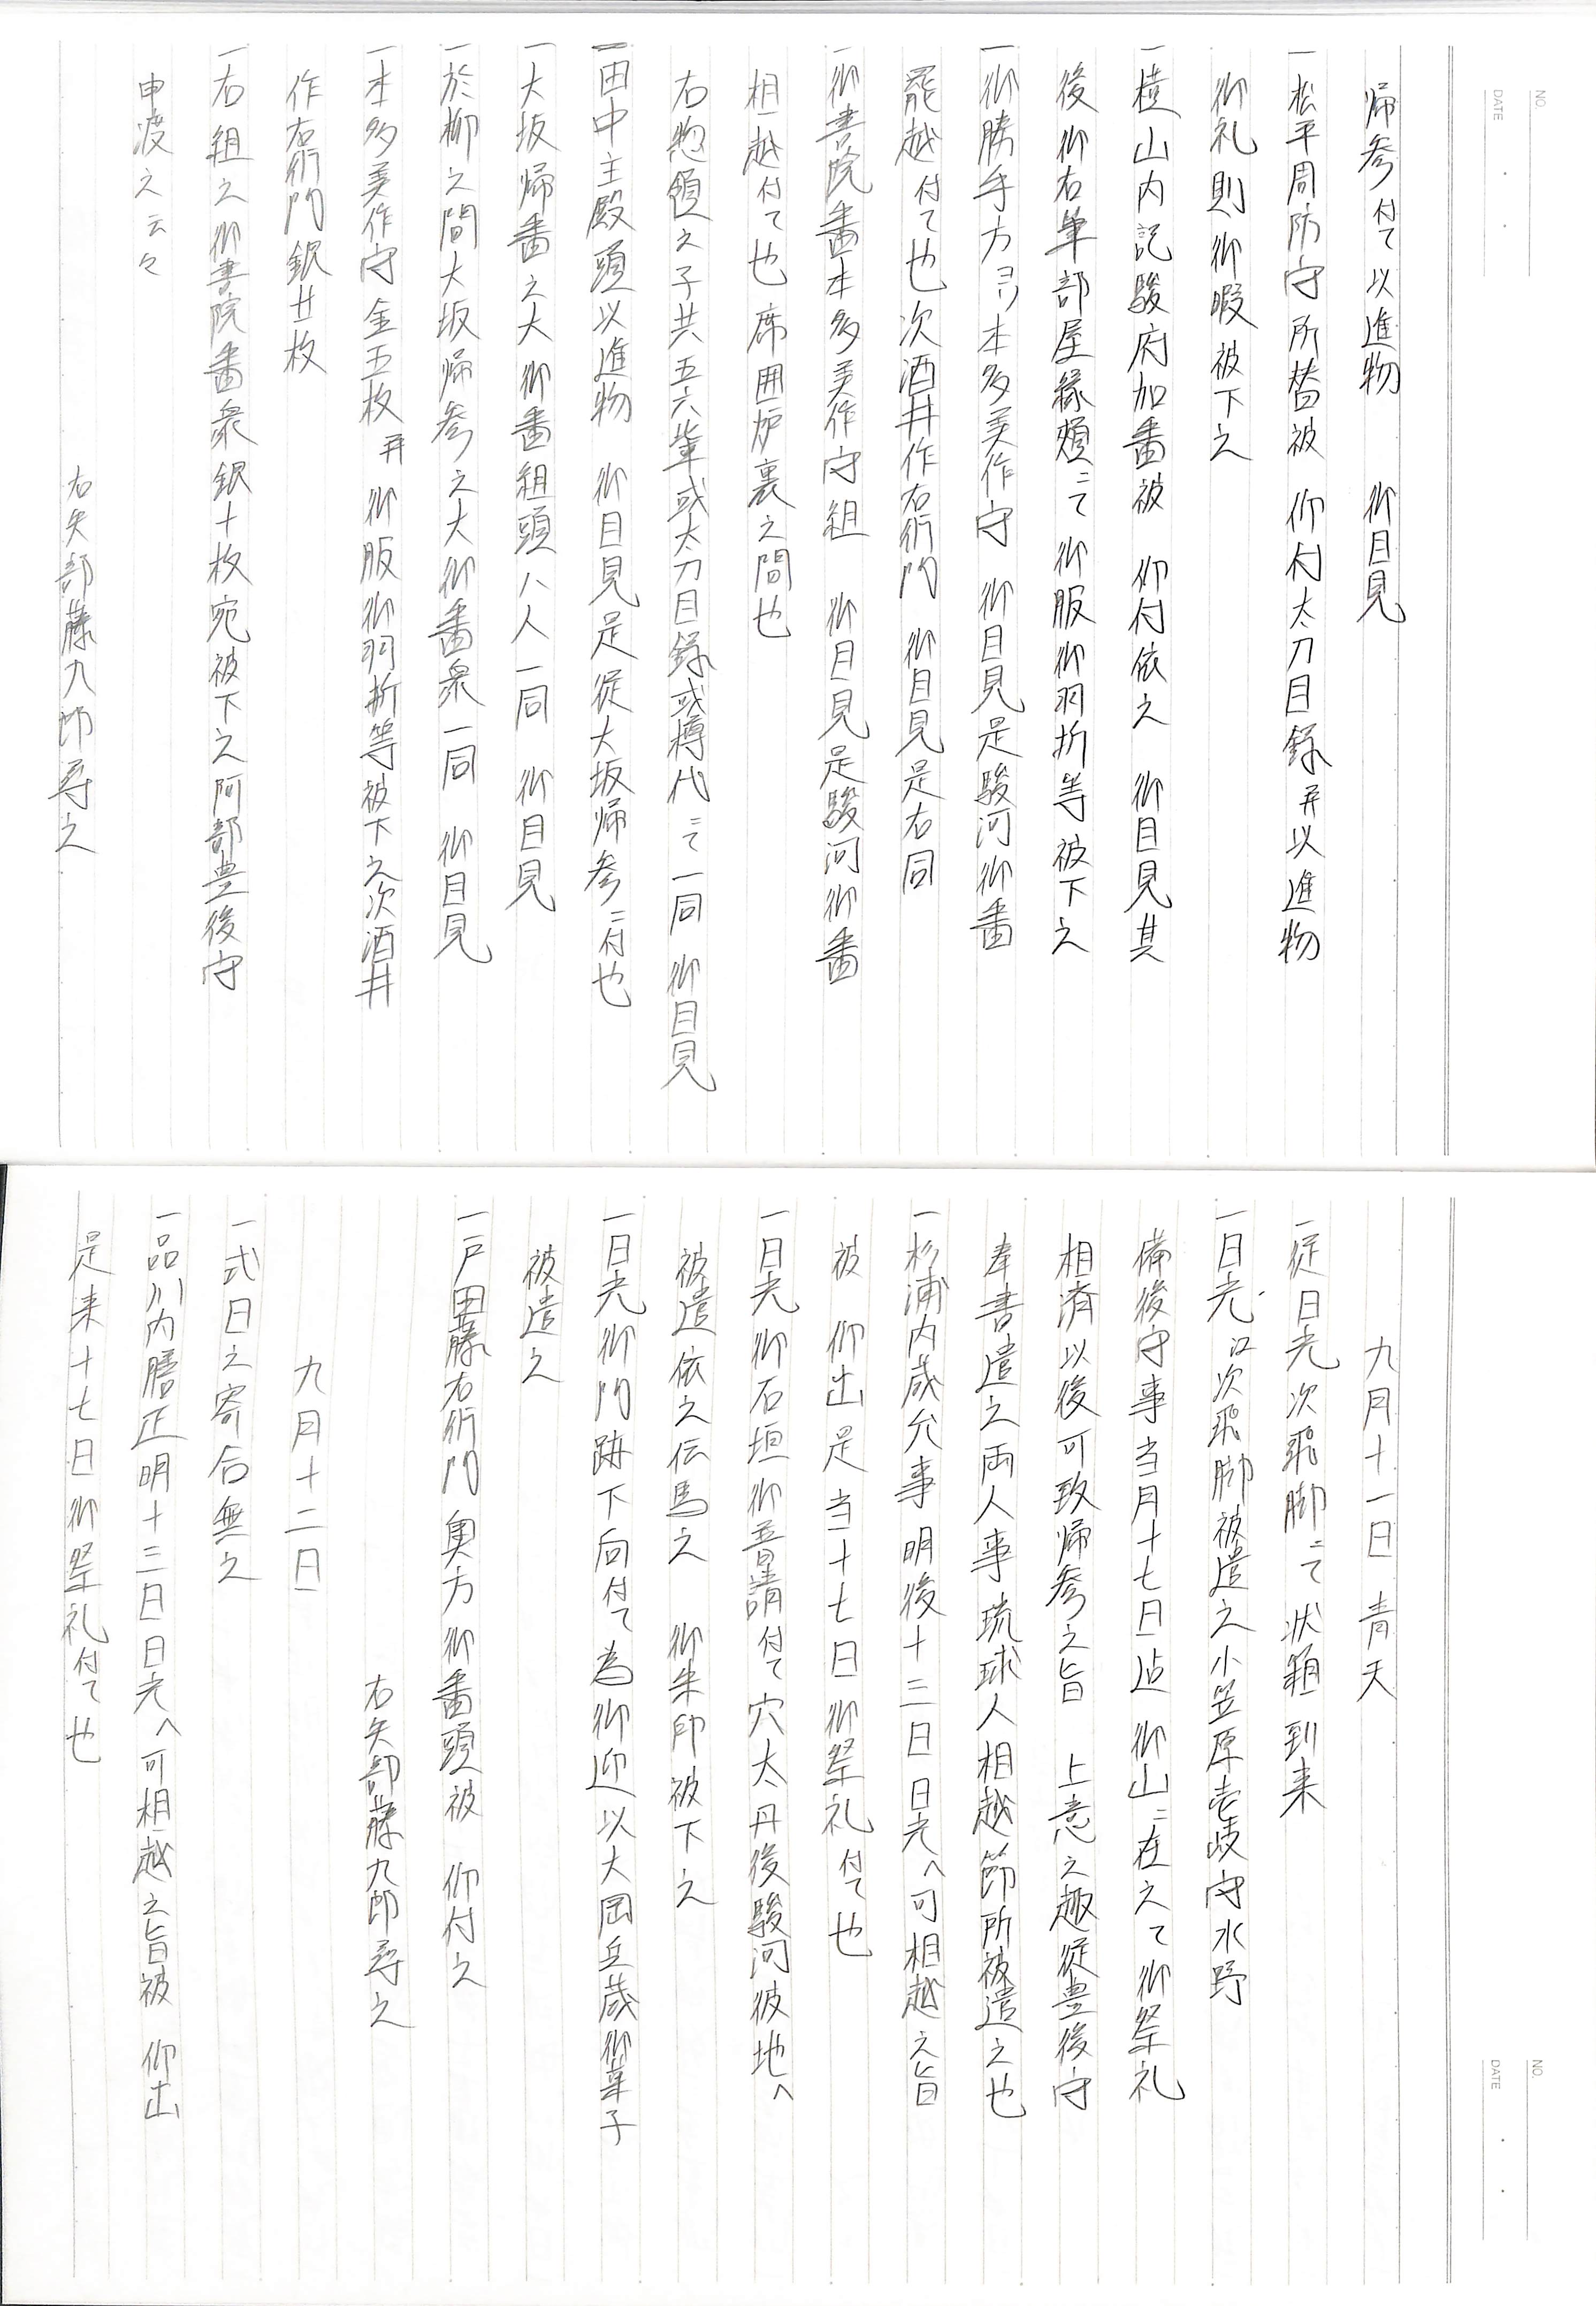 NO.
DATE
帰参付て以進物　御目見
一松平周防守所替被　仰付太刀目録并以進物
御礼則御暇被下之
一植山内記駿府加番被　仰付依之　御目見其
後御右筆部屋縁頬ニて御服御羽折等被下之
一御勝手方ヨリ本多美作守　御目見是駿河御番
罷越付て也次酒井作右衛門　御目見是右同
一御書院番本多美作守組　御目見是駿河御番
相越付て也席囲炉裏之間也
右惣領之子共五六輩或太刀目録或樽代ニて一同　御目見
一田中主殿頭以進物　御目見是従大坂帰参ニ付也
一大坂帰番之大御番組頭八人一同　御目見
一於柳之間大坂帰参之大御番衆一同　御目見
一本多美作守金五枚并　御服御羽折等被下之次酒井
作右衛門銀廿枚
一右組之御書院番衆銀十枚宛被下之阿部豊後守
申渡之云々
右矢部藤九郎尋之
NO.
DATE
九月十一日　青天
一従日光次飛脚ニて状箱到来
一日光江次飛脚被遣之小笠原壱岐守水野
備後守事当月十七日迄　御山ニ在之て御祭礼
相済以後可致帰参之旨　上意之趣従豊後守
奉書遣之両人事琉球人相越節所被遣之也
一杉浦内蔵允事明後十三日日光へ可相越之旨
被　仰出是当十七日御祭礼付て也
一日光御石垣御普請付て穴太丹後駿河彼地へ
被遣依之伝馬之　御朱印被下之
一日光御門跡下向付て為御迎以大岡兵蔵御菓子
被遣之
一戸田藤右衛門奥方御番頭被　仰付之
右矢部藤九郎尋之
九月十二日
一式日之寄合無之
一品川内膳正明十三日日光へ可相越之旨被　仰出
是来十七日御祭礼付て也